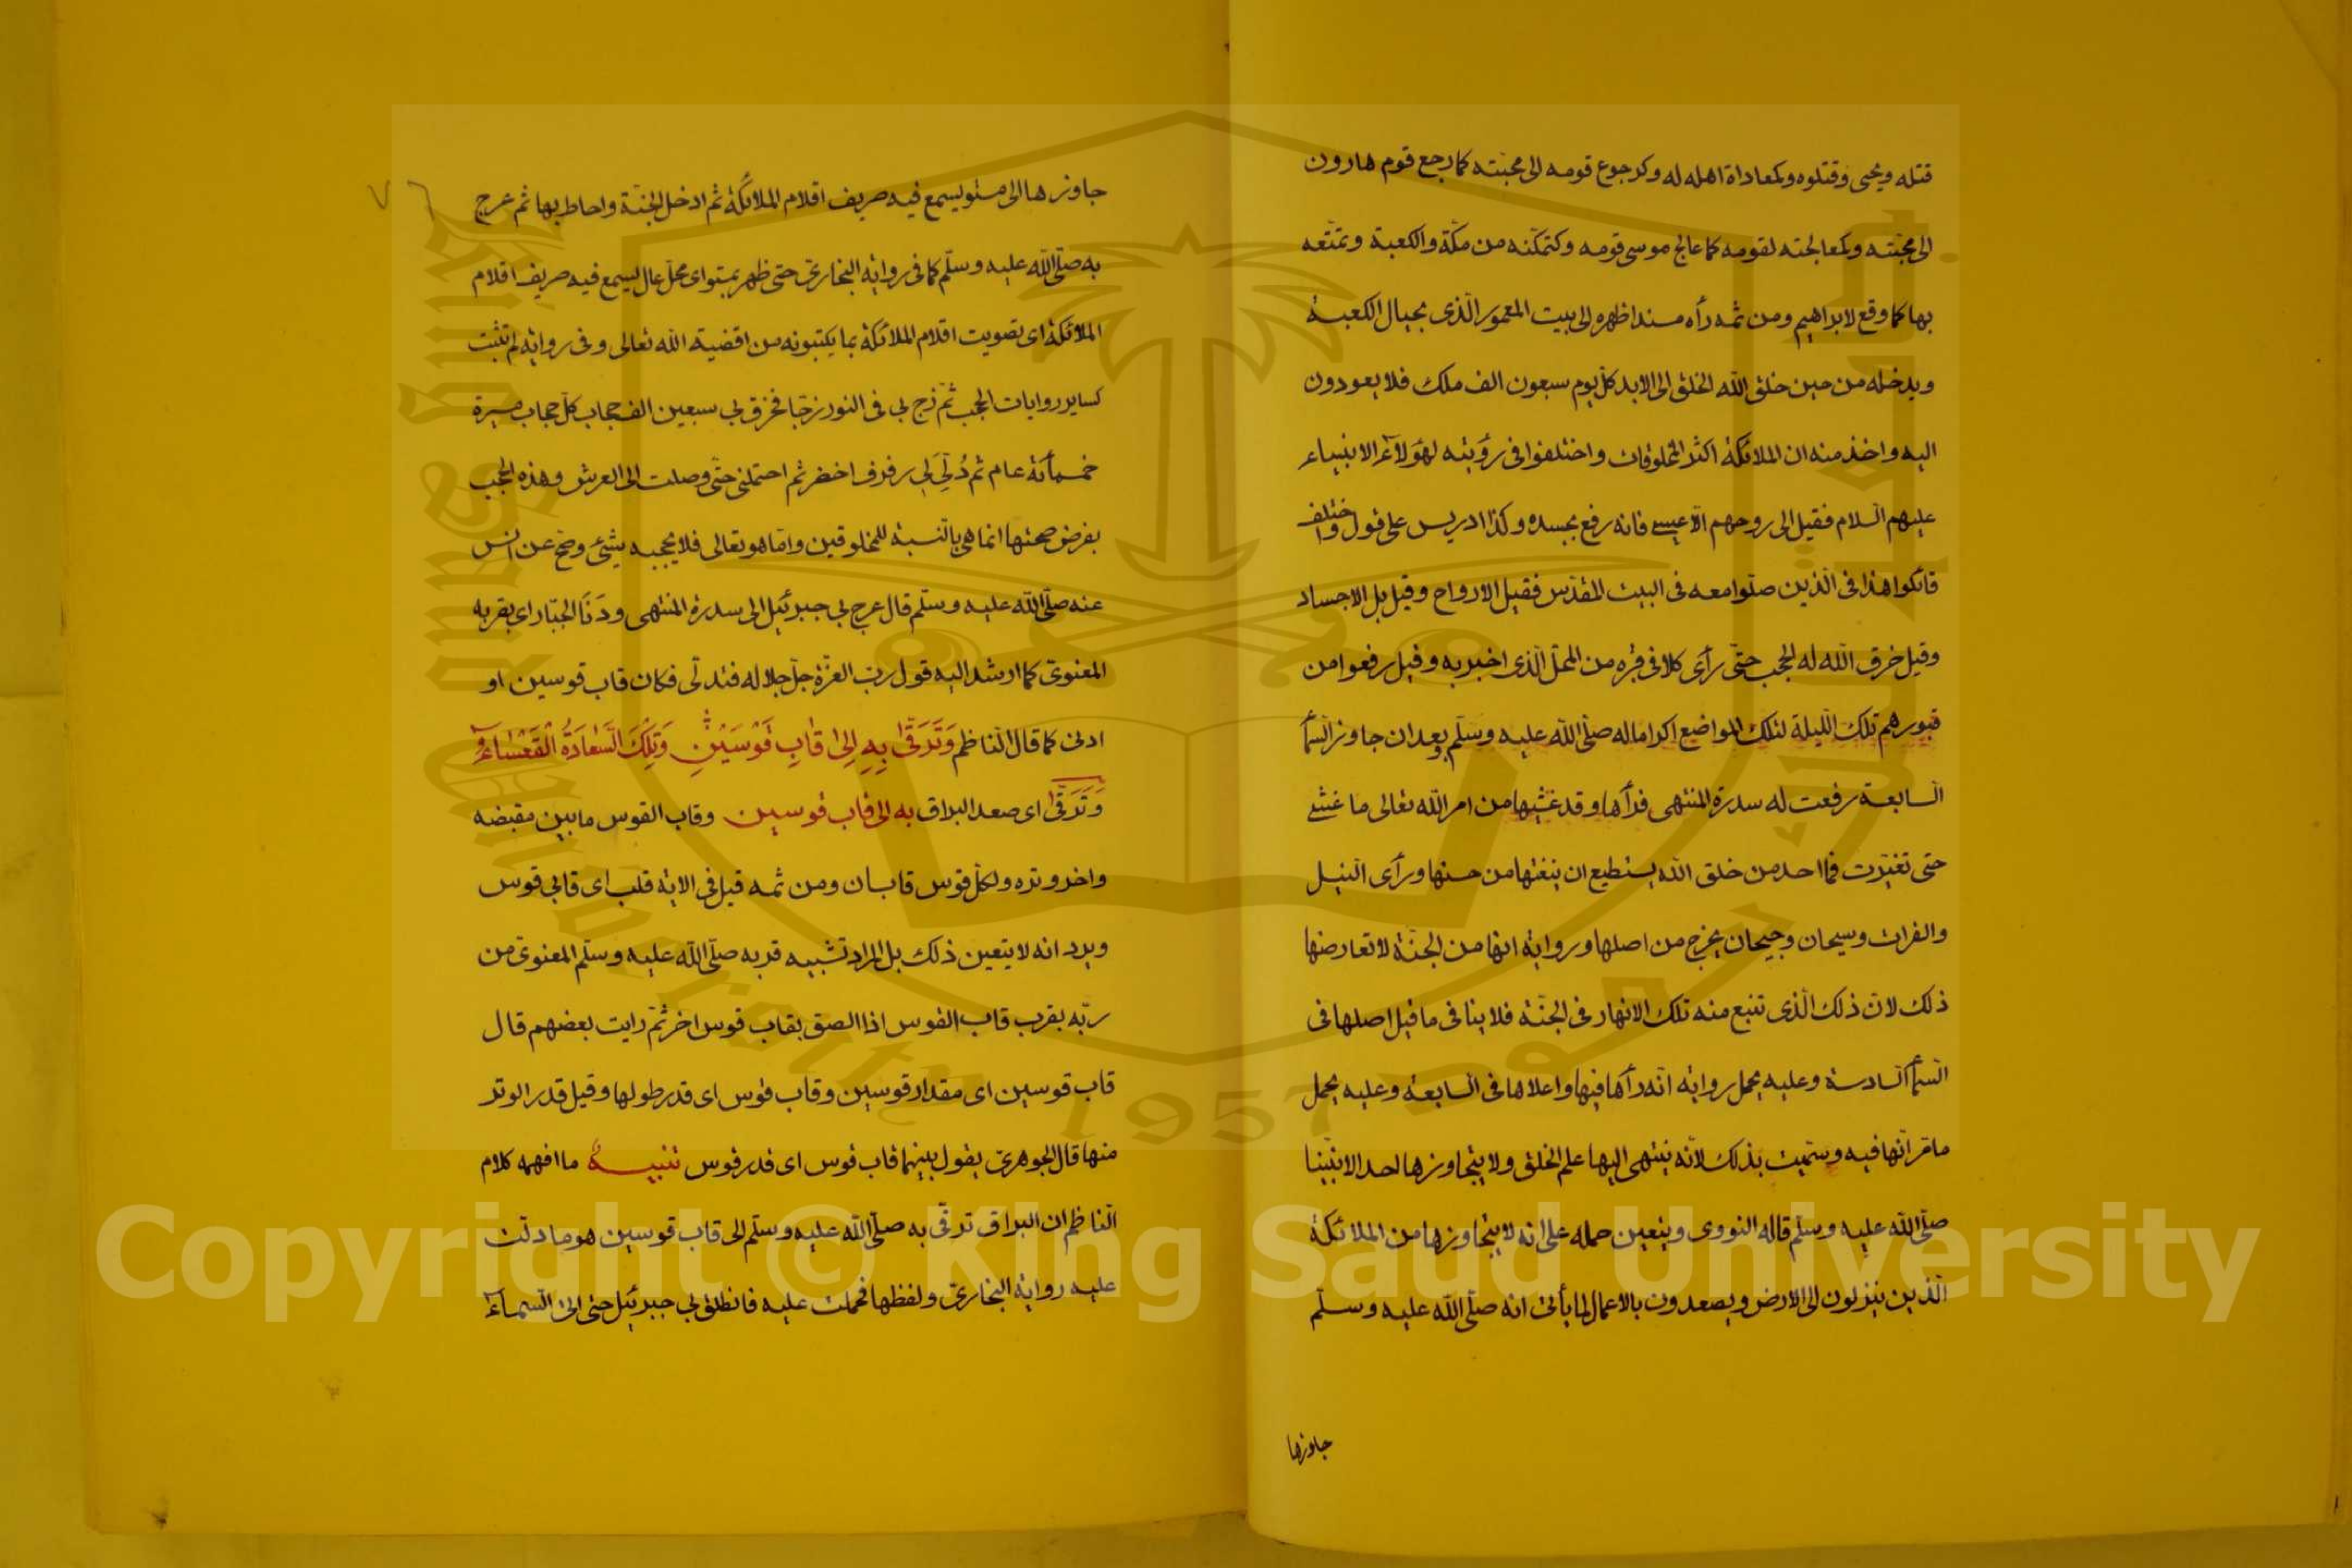 قتله ويحيى وقتلوه وكمعاداة اهله له وكرجوع قومه الى محبته كما رجع قوم هارون
الى محبته وكمعالجته لقومه كما عالج موسى قومه وكتمكنه من مكة والكعبة وتمتعه
بها كما وقع لابراهيم ومن ثمه رأه مسندا ظهره الى بيت المعمور الذى بحيال الكعبة
ويدخله من حين خلق الله الخلق الى الابد كل يوم سبعون الف ملك فلا يعودون
اليه واخذ منه ان الملائكة اكثر المخلوقات واختلفوا فى رؤيته لهؤلاء الانبياء
عليهم السلام فقيل الى روحهم الا عيسى فانه رفع بجسده وكذا ادريس على قول واختلف
قائلوا هذا فى الذين صلوا معه فى البيت المقدس فقيل الارواح وقيل بل الاجساد
وقيل خرق الله له الحجب حتى رأى كلا فى قبره من المحل الذى اخبر به وقيل رفعوا من
قبورهم تلك الليلة لتلك المواضع اكراما له صلى الله عليه وسلم وبعد ان جاوز السمأ
السابعة رفعت له سدرة المنتهى فرأها وقد غشيها من امر الله تعالى ما غشى
حتى تغيرت فما احد من خلق الله يستطيع ان ينعتها من حسنها ورأى النيل
والفرات وسيحان وجيحان يخرج من اصلها ورواية انها من الجنة لا تعارضها
ذلك لان ذلك الذى تنبع منه تلك الانهار فى الجنة فلا ينافى ما قيل اصلها فى
السمأ السادسة وعليه يحمل رواية انه رأها فيها واعلاها فى السابعة وعليه يحمل
ما مر انها فيه وسميت بذلك لانه ينتهى اليها علم الخلق ولا يتجاوزها احد الا نبينا
صلى الله عليه وسلم قاله النووى ويتعين حمله على انه لا يتجاوزها من الملائكة
الذين ينزلون الى الارض ويصعدون بالاعمال لما يأتى انه صلى الله عليه وسلم
جاوزها
جاوزها الى مستو يسمع فيه صريف اقلام الملائكة ثم ادخل الجنة واحاط بها ثم عرج
به صلى الله عليه وسلم كما فى رواية البخارى حتى ظهر بمستو اى محل عال يسمع فيه صريف اقلام
الملائكة اى تصويت اقلام الملائكة بما يكتبونه من اقضية الله تعالى وفى رواية لم تثبت
كساير روايات الحجب ثم زج بى فى النور زجا فخرق بى سبعين الف حجاب كل حجاب مسيرة
خمسمأئة عام ثم دلى لى رفرف اخضر ثم احتملنى حتى وصلت الى العرش وهذه الحجب
بفرض صحتها انما هى بالنسبة للمخلوقين واما هو تعالى فلا يحجبه شئ وصح عن انس
عنه صلى الله عليه وسلم قال عرج بى جبرئيل الى سدرة المنتهى ودنا الجبار اى بقربه
المعنوى كما ارشد اليه قول رب العزة جل جلاله فتدلى فكان قاب قوسين او
ادنى كما قال الناظم وَتَرَقَّى بِهِ اِلىٰ قَابِ قَوْسَيْنِ وَتِلْكَ السَّعَادَةُ الْقَعْسَاءُ
وَتَرَقَّى اى صعد البراق به الى قاب قوسين وقاب القوس ما بين مقبضه
واخر وتره ولكل قوس قابان ومن ثمه قيل فى الاية قلب اى قابى قوس
ويرد انه لا يتعين ذلك بل المراد تشبيه قربه صلى الله عليه وسلم المعنوى من
ربه بقرب قاب القوس اذا الصق بقاب قوس اخر ثم رايت بعضهم قال
قاب قوسين اى مقدار قوسين وقاب قوس اى قدر طولها وقيل قدر الوتر
منها قال الجوهرى يقول بينهما قاب قوس اى قدر قوس تنبيه ما افهمه كلام
الناظم ان البراق ترقى به صلى الله عليه وسلم الى قاب قوسين هو ما دلت
عليه رواية البخارى ولفظها فحملت عليه فانطلق بى جبرئيل حتى اتى السماء
King Saud University
1957
Copyright © King Saud University